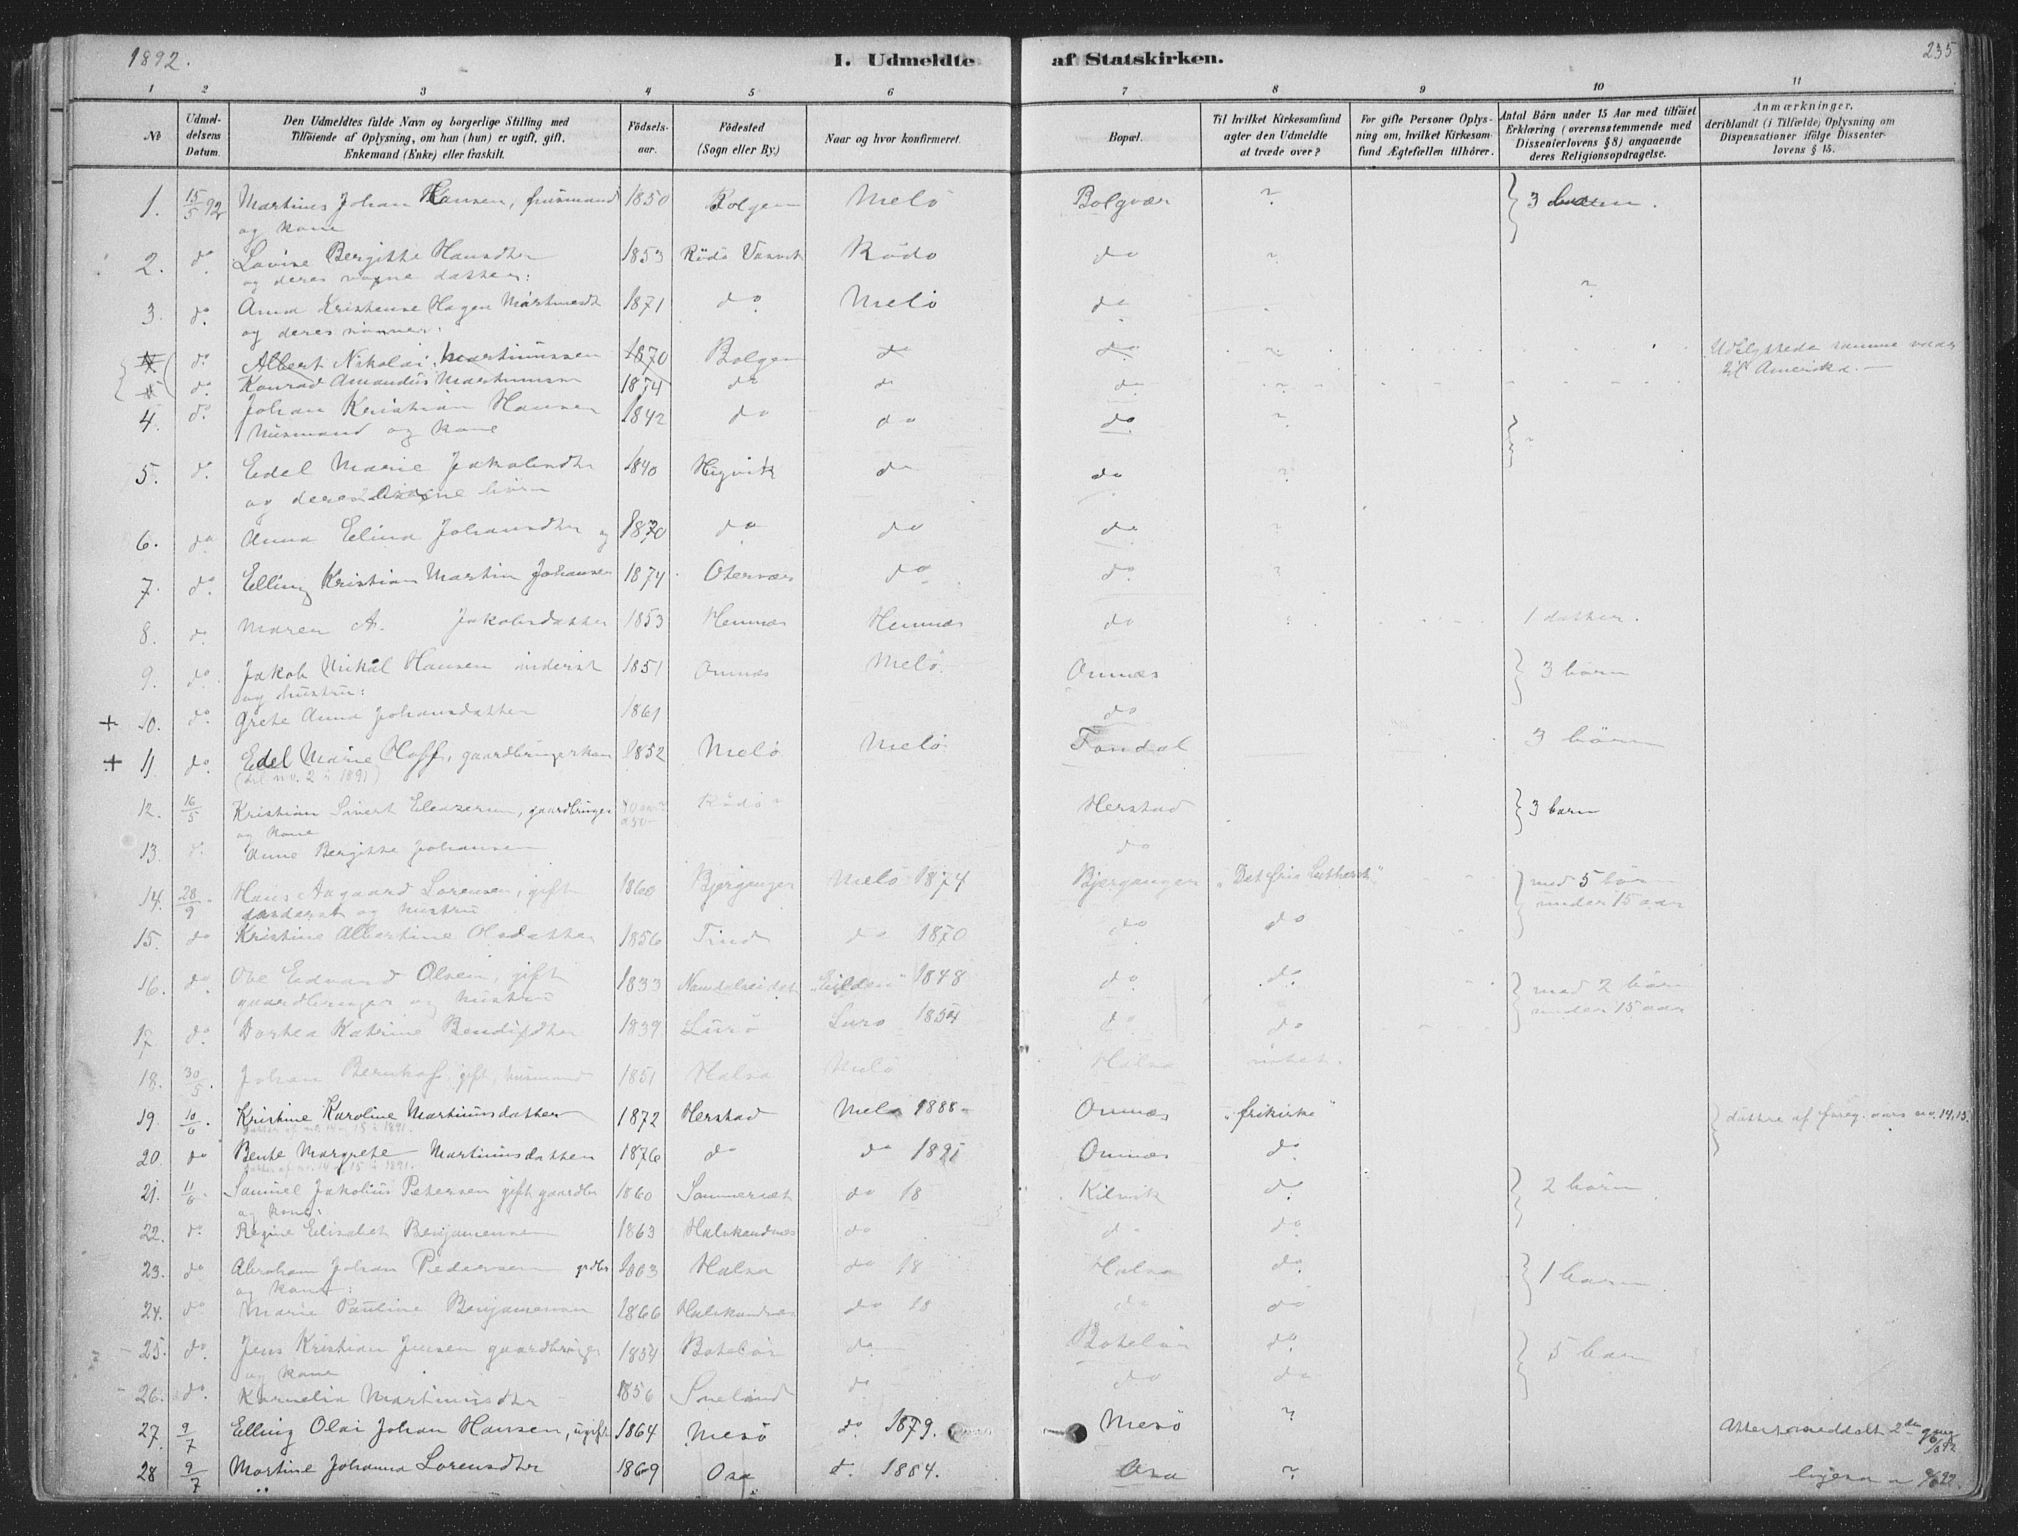 1892.
I. Udmeldte af Statskirken.
235
1 2 3 4 5 6 7 8 9 10 11
No
Udmel-
delsens
Datum.
Den Udmeldtes fulde Navn og borgerlige Stilling med
Tilföiende af Oplysning, om han (hun) er ugift, gift,
Enkemand (Enke) eller fraskilt.
Födsels-
aar.
Födested
(Sogn eller By.)
Naar og hvor konfirmeret.
Bopæl.
Til hvilket Kirkesamfund
agter den Udmeldte
at træde over?
For gifte Personer Oplys-
ning om, hvilket Kirkesam-
fund Ægtefællen tilhörer.
Antal Börn under 15 Aar med tilföiet
Erklæring (overensstemmende med
Dissenterlovens § 8) angaaende
deres Religionsopdragelse.
Anmærkninger,
deriblandt (i Tilfælde) Oplysning om
Dispensationer ifölge Dissenter-
lovens § 15.
1. 15/5 92 Martinus Johan Hansen, husmand 1850 Bolgen Melö Bolgvær ? 3
og kone
2. do. Lovise Bergitte Hansdtr 1853 Rödö Rödö do ?
og deres voxne datter:
3. do. Anna Kristense Hagen Martinusdt 1871 do Melö do ?
og deres sönner:
do. Albert Nikolai Martinussen 1870 Bolgen do do Udflyttede samme vaar
do. Konrad Amandus Martinussen 1874 do do do til Amerika.
4. do. Johan Kristian Hansen 1842 do do do ?
husmand og kone
5. do. Edel Marie Jakobsdtr 1840 Hegvik do do ?
og deres voxne börn
6. do Anna Elina Johansdtr og 1870 do do do
7. do. Elling Kristian Martin Johansen 1874 Otervær do do
8. do Maren A. Jakobsdatter 1853 Hemnæs Hemnæs do 1 datter.
9. do. Jakob Mikal Hansen inderst 1851 Ornnæs Melö Ornnæs 3 börn
og hustru:
+ 10. do. Grete Anna Johansdatter 1861 do
+ 11. do. Edel Marie Hoff, gaardbrugerkone 1852 Melö Melö Fondal 3 börn
(til no. 2 i 1891)
12. 16/5 Kristian Sivert Eleasersen, gaardbruger Rödö Herstad 3 barn
og kone
13. do. Anne Bergitte Johansen do
14. 28/9 Hans Aagaard Lorensen, gift 1860 Bjerganger Melö 1874 Bjerganger "Det frie Luthersk" med 5 börn
og hustru under 15 aar
15. do Kristine Albertine Olsdatter 1856 do 1870 do do
16. do Ove Edvard Olsen, gift 1833 Namdalseidet 1848 do do med 2 börn
gaardbruger og hustru under 15 aar
17. do. Dortea Katrine Bendiksdtr 1839 Lurö Lurö 1854 do do
18. 30/5. Johan Bernhof, gift, husmand 1851 Halsa Melö Halsa intet.
19. 10/6. Kristine Karoline Martinusdatter 1872 Herstad Melö 1888 Ornnæs "frikirke" döttre af foreg. aars no. 14, 15.
datter af no. 14 og 15 i 1891.
20 do Bente Margrete Martinusdatter 1876 do do 1891 Ornnæs do
datter af no. 14 og 15 i 1891.
21. 11/6. Samuel Jakobus Petersen gift gaardbr 1860 Sommerset do 18 Kilvik do 2 börn
og kone:
22. do Regine Elisabet Benjaminsen 1863 Halskandnæs do do do
23. do Abraham Johan Pedersen grdbr 1863 Halsa do 18 Halsa do 1 barn
og kone:
24. do Marie Pauline Benjaminsen 1866 Halskandnæs do 18 do do
25. do. Jens Kristian Jensen gaardbruger 1854 Bolelöi do Bolelöi do 5 barn
og kone
26. do. Kornelia Martinusdtr 1856 do do do
27. 9/7 Elling Olai Johan Hansen, ugift 1864 Mesö do. 1879. Mesö ? Attest meddelt 2den gang
28 9/7 Martine Johanna Lorensdtr 1869 Osa d. 1884. Osa ?